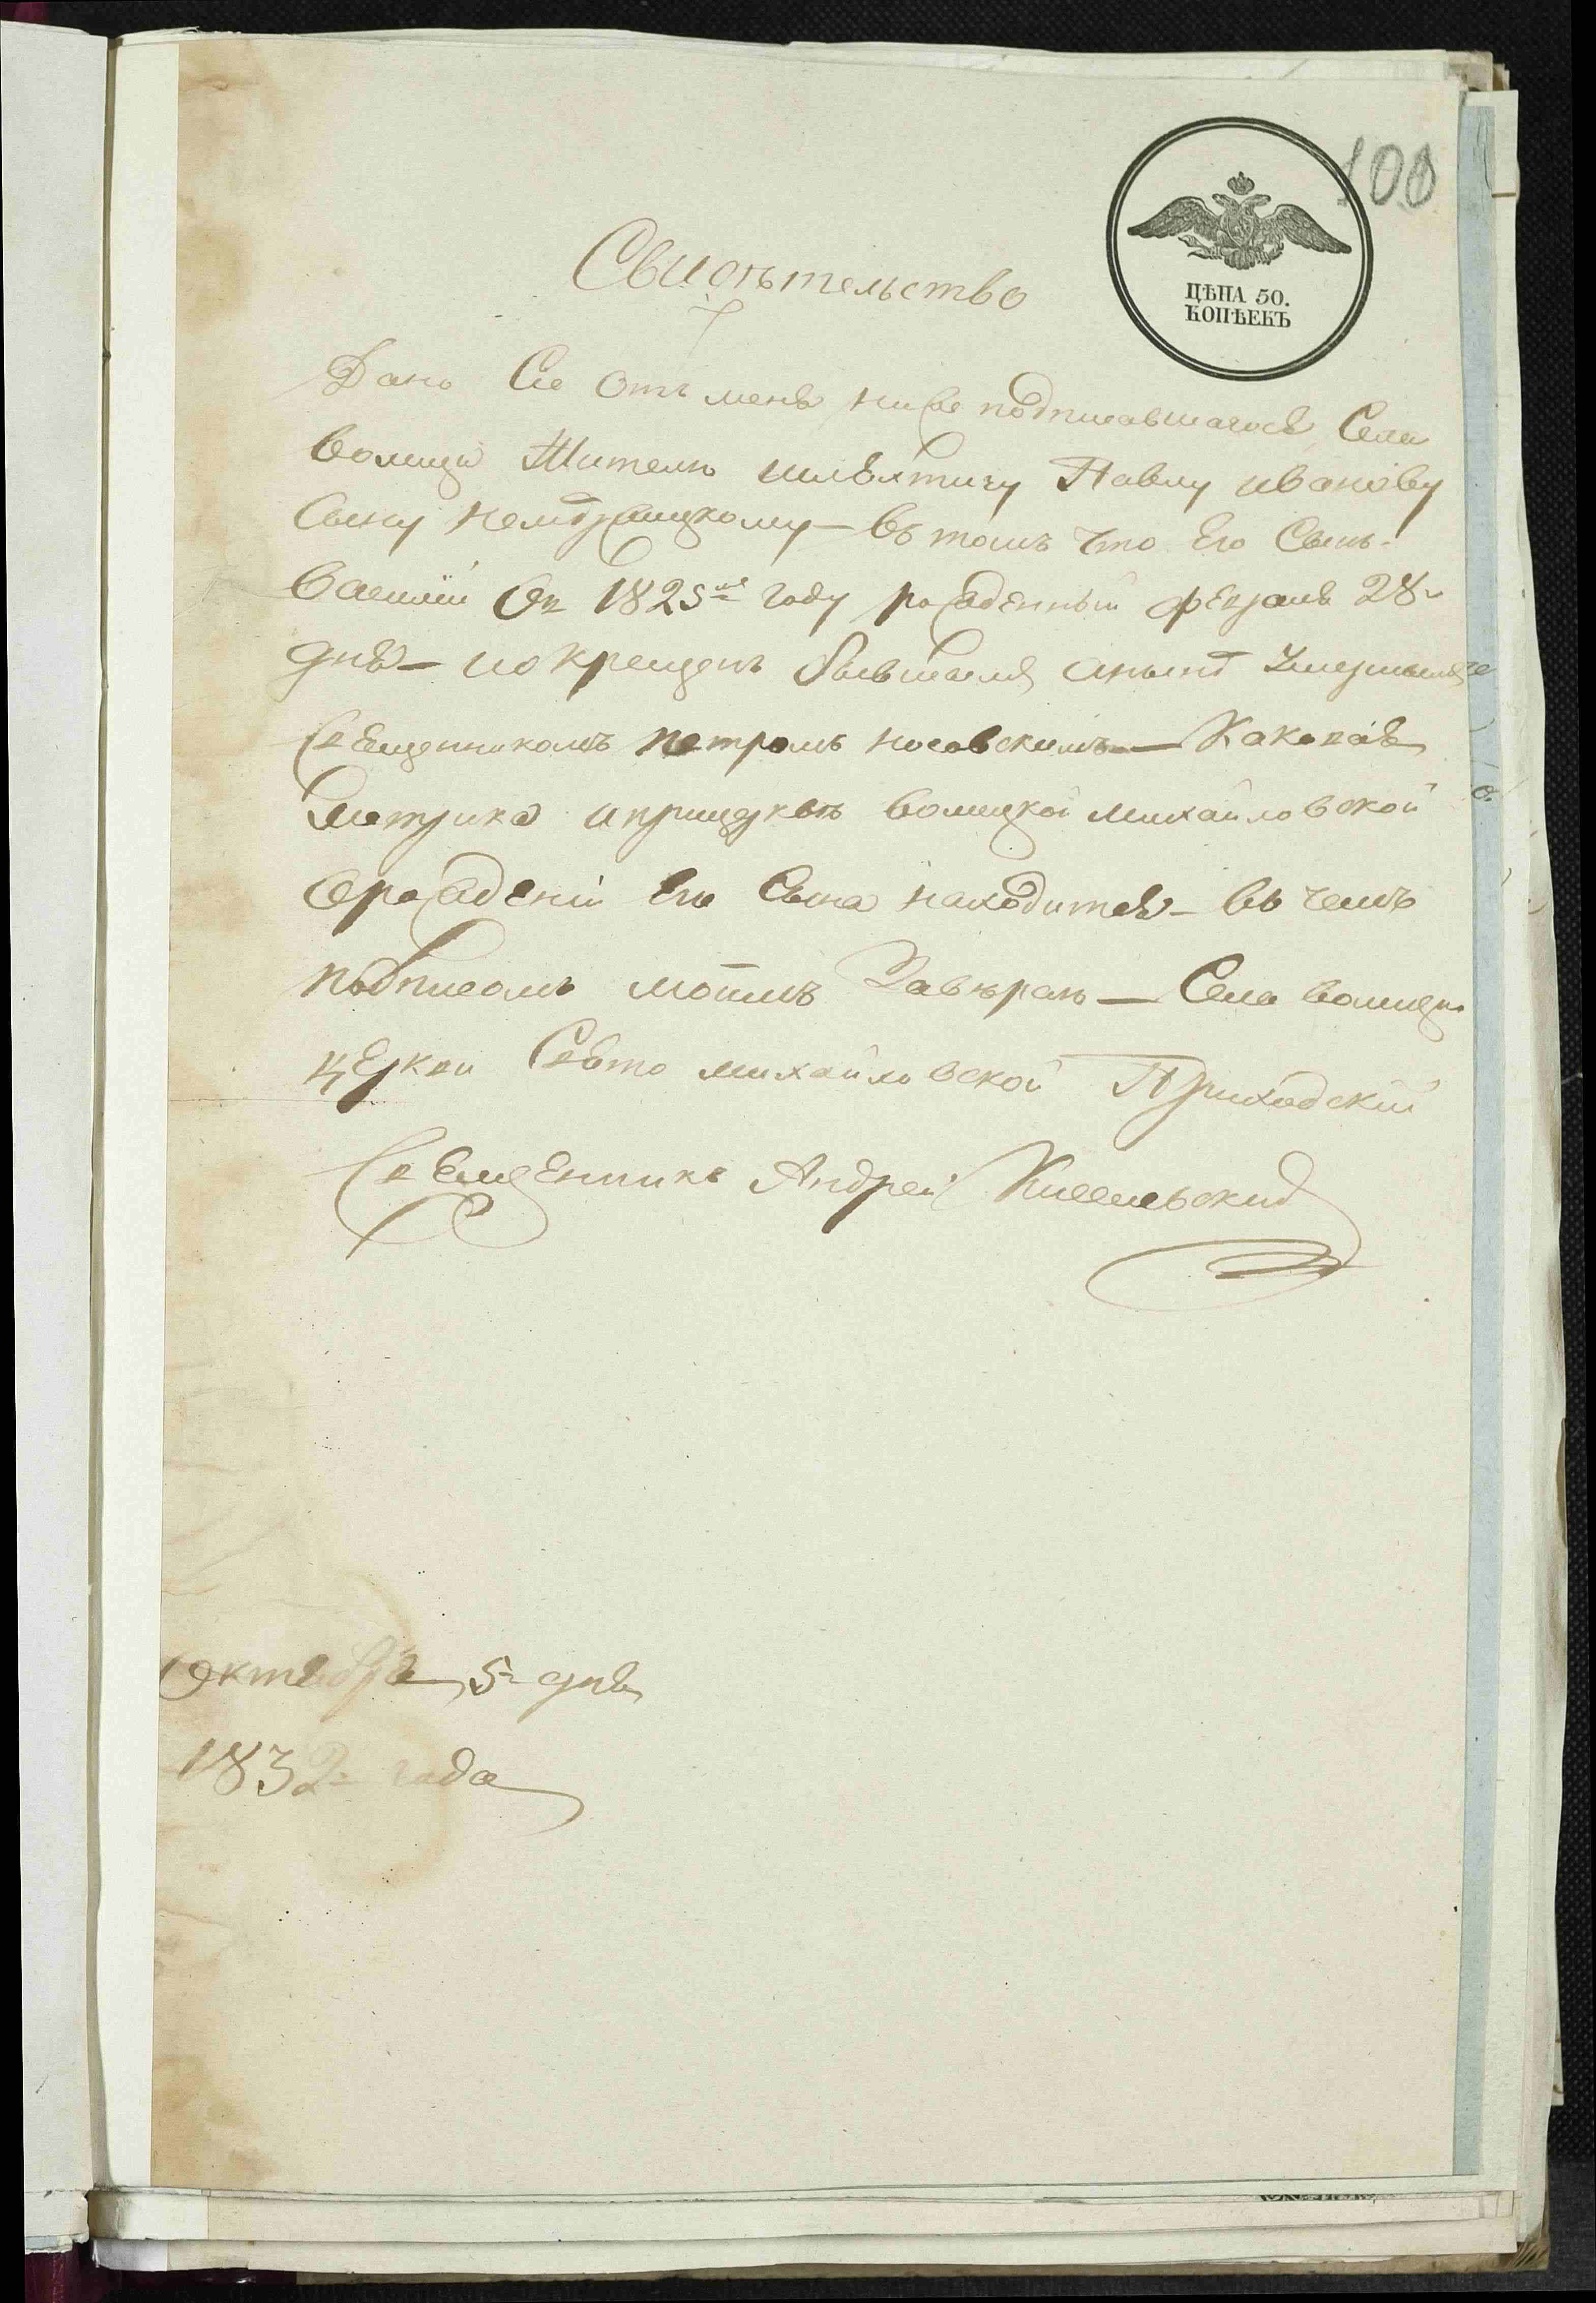 100
ЦѢНА 50.
КОПѢЕКЪ
Свидѣтельство
Дано Сіе Отъ меня ниже подписавшагося Села
волицы Жителю шляхтичу Павлу иванову
Сыну Немѣрицкому – въ томъ что Его Сынъ
Василій Въ 1825мъ году рожденный февраля 28
дня – и окрещенъ бывшимъ а нынѣ Умершимъ
Священникомъ петромъ носовскимъ – Каковая
метрика и прицеркви волицкой михайловской
орожденіи Его Сына находится – въ чемъ
подписомъ моимъ Завѣраю – Села волицы
церкви Свято михайловской Приходскій
Священникъ Андрей
Октября 5 дня
1832 года